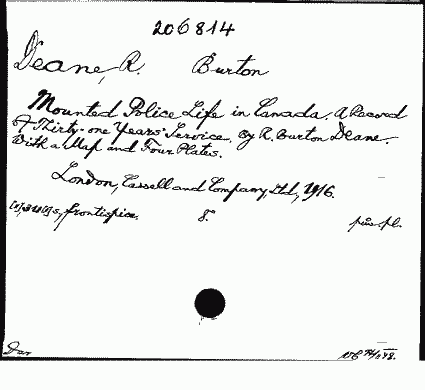 206814
Deane, R. Burton
Mounted Police Life in Canada. A Record
of Thirty-one Years' Service. By R. Burton Deane.
With a Map and Four Plates.
London, Cassell and Company, Ltd, 1916.
frontispice. 8°. pl.